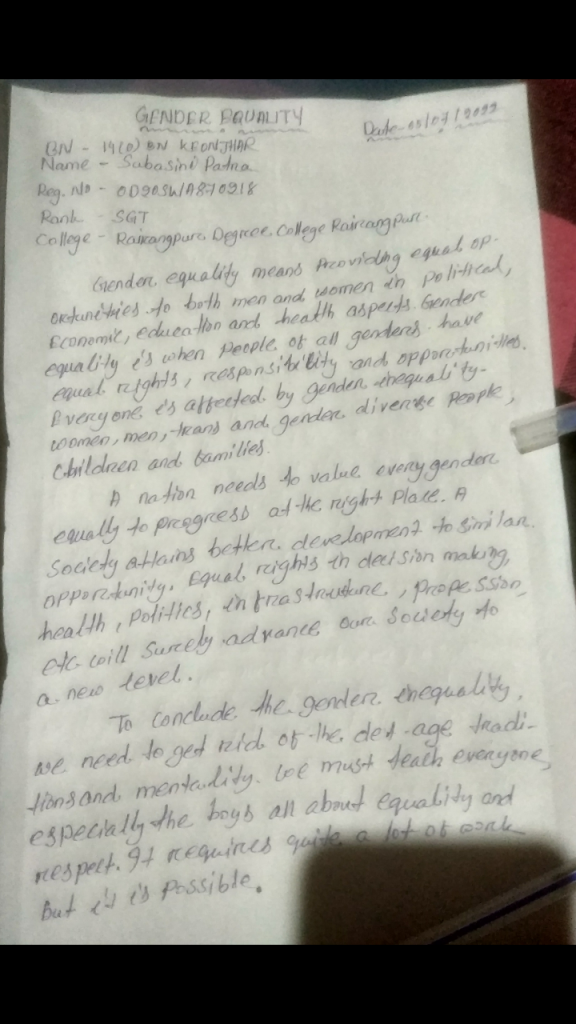 GENDER EQUALITY
Date-05/07/2022
BN - 14(O) BN KEONJHAR
Name - Subasini Patra
Reg. No - OD20SWA870918
Rank - SGT
College - Rairangpur Degree College Rairangpur.
Gender equality means Providing equal op-
ortunities to both men and women in political,
Economic, education and health aspects. Gender
equality is when People of all genders have
equal rights, responsibility and opportunities.
Everyone is affected by gender inequality-
women, men, trans and gender diverse People,
children and families.
A nation needs to value every gender
equally to progress at the right Place. A
Society attains better development to similar
opportunity. Equal rights in decision making,
health, Politics, infrastructure, Profession,
etc will surely advance our Society to
a new level.
To conclude the gender inequality,
we need to get rid of the age tradi-
tions and mentality. We must teach everyone,
especially the boys all about equality and
respect. It requires quite a lot of work
but it is Possible.